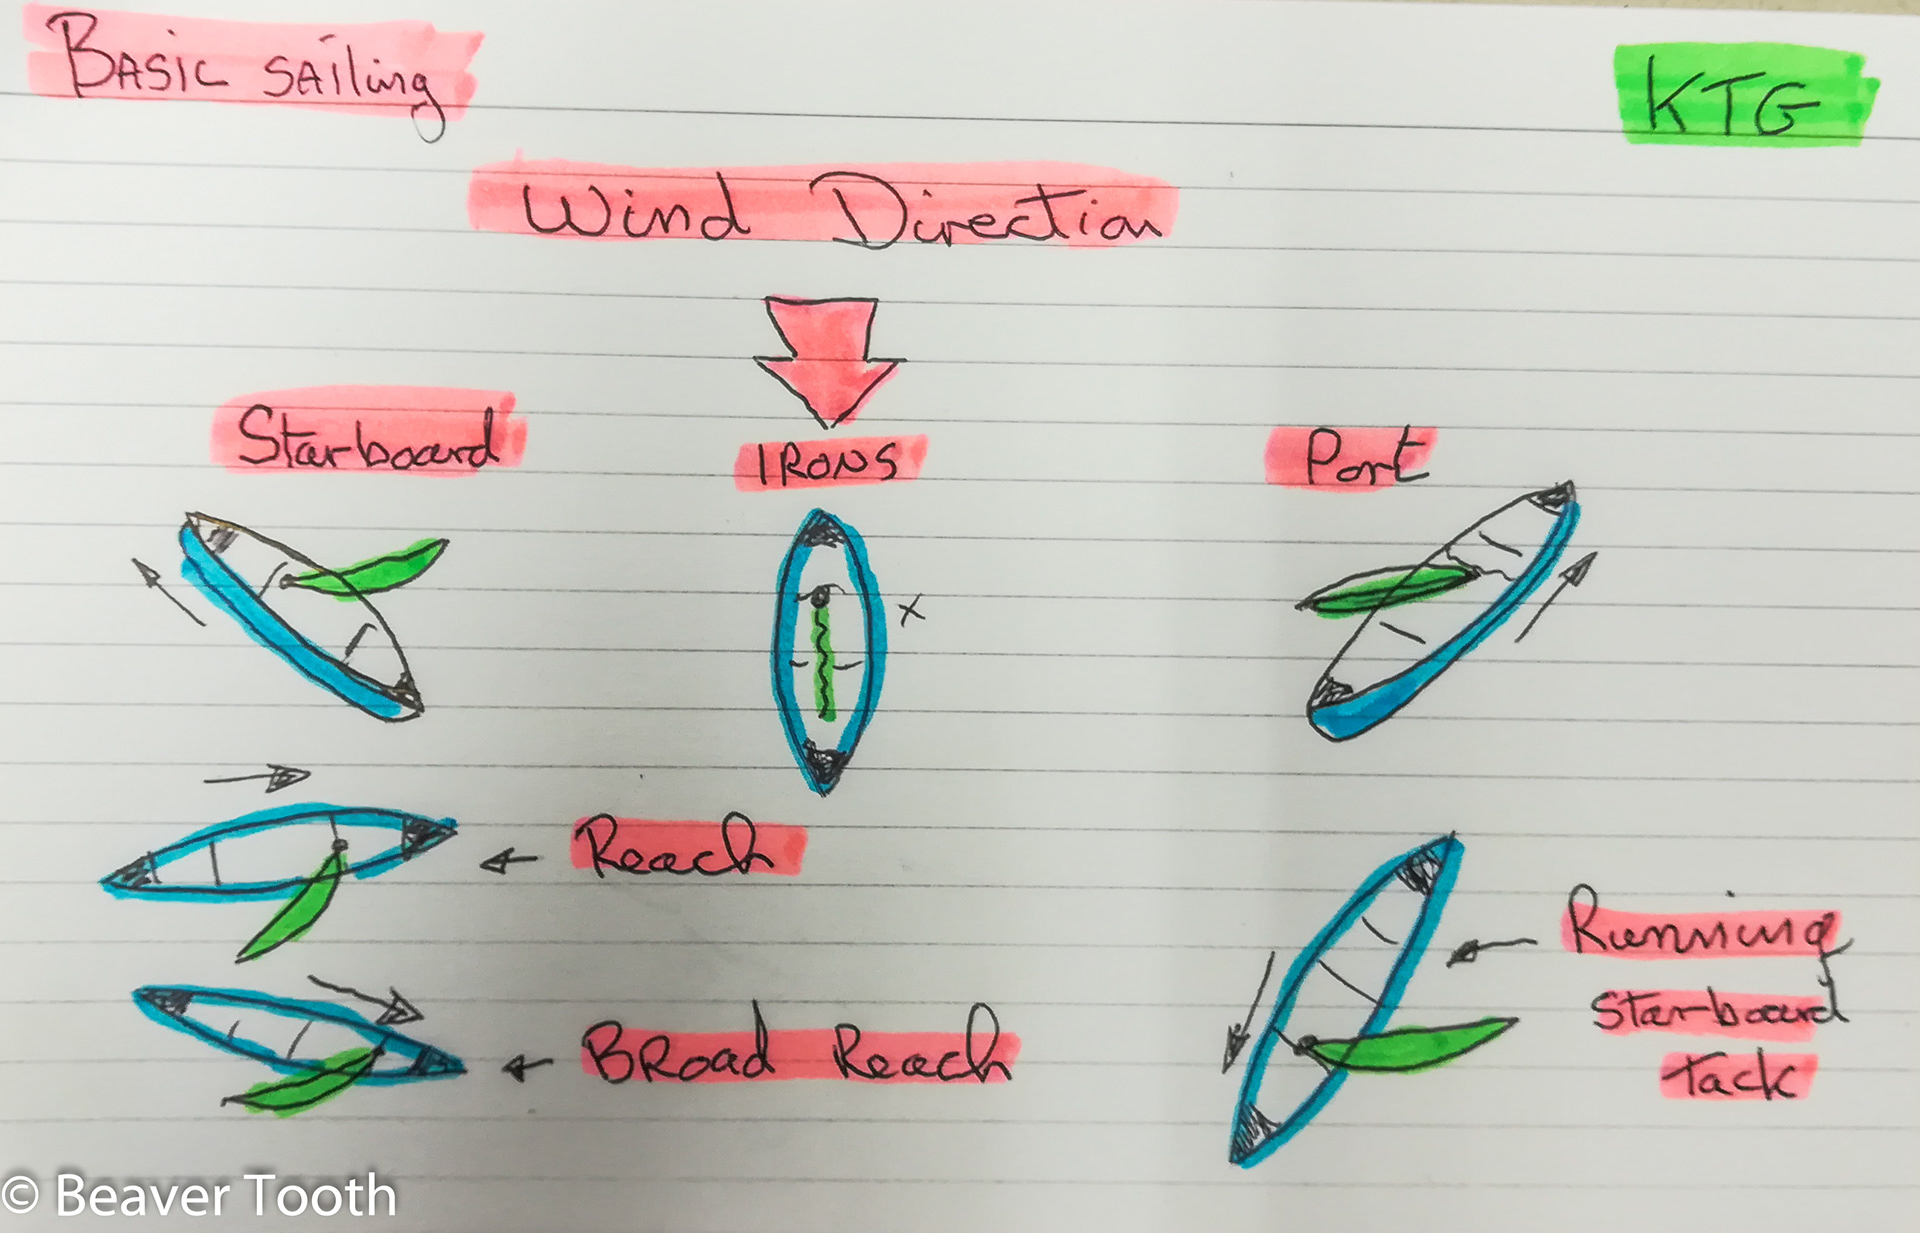 BASIC SAILING
KTG
Wind Direction
Starboard
IRONS
Port
x
Reach
Running
Starboard
tack
BROAD REACH
© Beaver Tooth